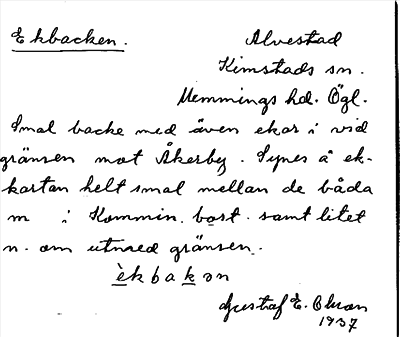 Ekbacken.
Alvestad
Kimstads sn.
Memmings hd. Ögl.
Smal backe med även ekar i vid
gränsen mot Åkerby. Synes å ek-
kartan helt smal mellan de båda
m i Kommin. bost. samt litet
n. om utmed gränsen.
èkbakən
Gustaf E. Olson
1937